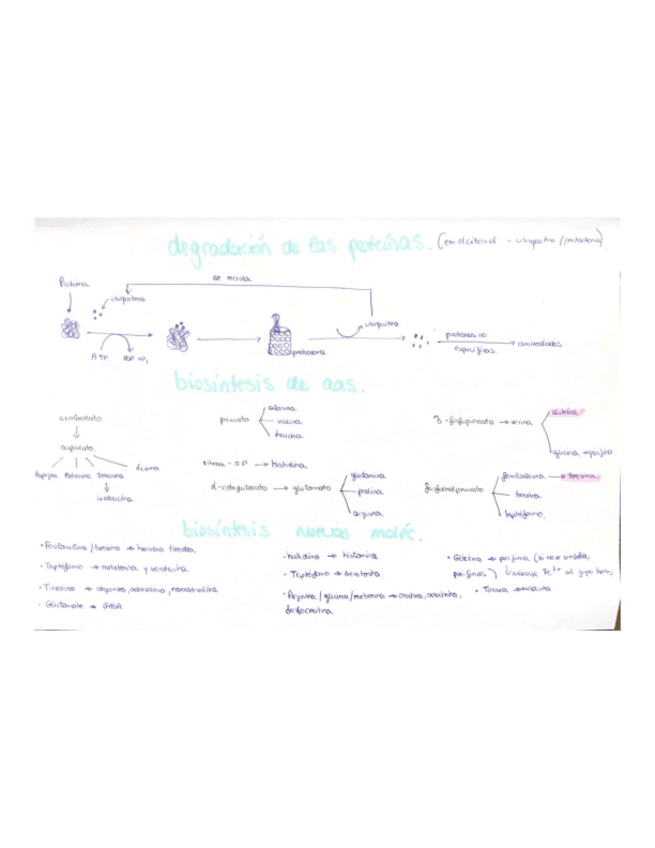 degradación de las proteínas. (en el citosol - ubiquitina / proteasoma)
se recicla
Proteína
ubiquitina
ubiquitina
proteasoma
ATP ADP + Pi
proteasas no específicas
aminoácidos
biosíntesis de aas.
oxalacetato
aspartato
Metionina Treonina Lisina
isoleucina
piruvato
alanina
valina
leucina
ribosa - 5P → histidina
α-cetoglutarato → glutamato
glutamina
prolina
arginina
3-fosfoglicerato → serina
cisteína
glicina
fosfoenolpiruvato
fenilalanina → tirosina
tirosina
triptófano
biosíntesis nuevas moléc.
• Fenilalanina / tirosina → hormona tiroidea
• Triptófano → melatonina y serotonina
• Tirosina → dopamina, adrenalina, noradrenalina
• Glutamato → GABA
• histidina → histamina
• Triptófano → serotonina
• Arginina / glicina / metionina → creatina, creatinina,
fosfocreatina
• Glicina → porfirina (si no se sintetiza,
porfirias) introduce Fe²⁺ al grupo hemo
• Tirosina → melanina